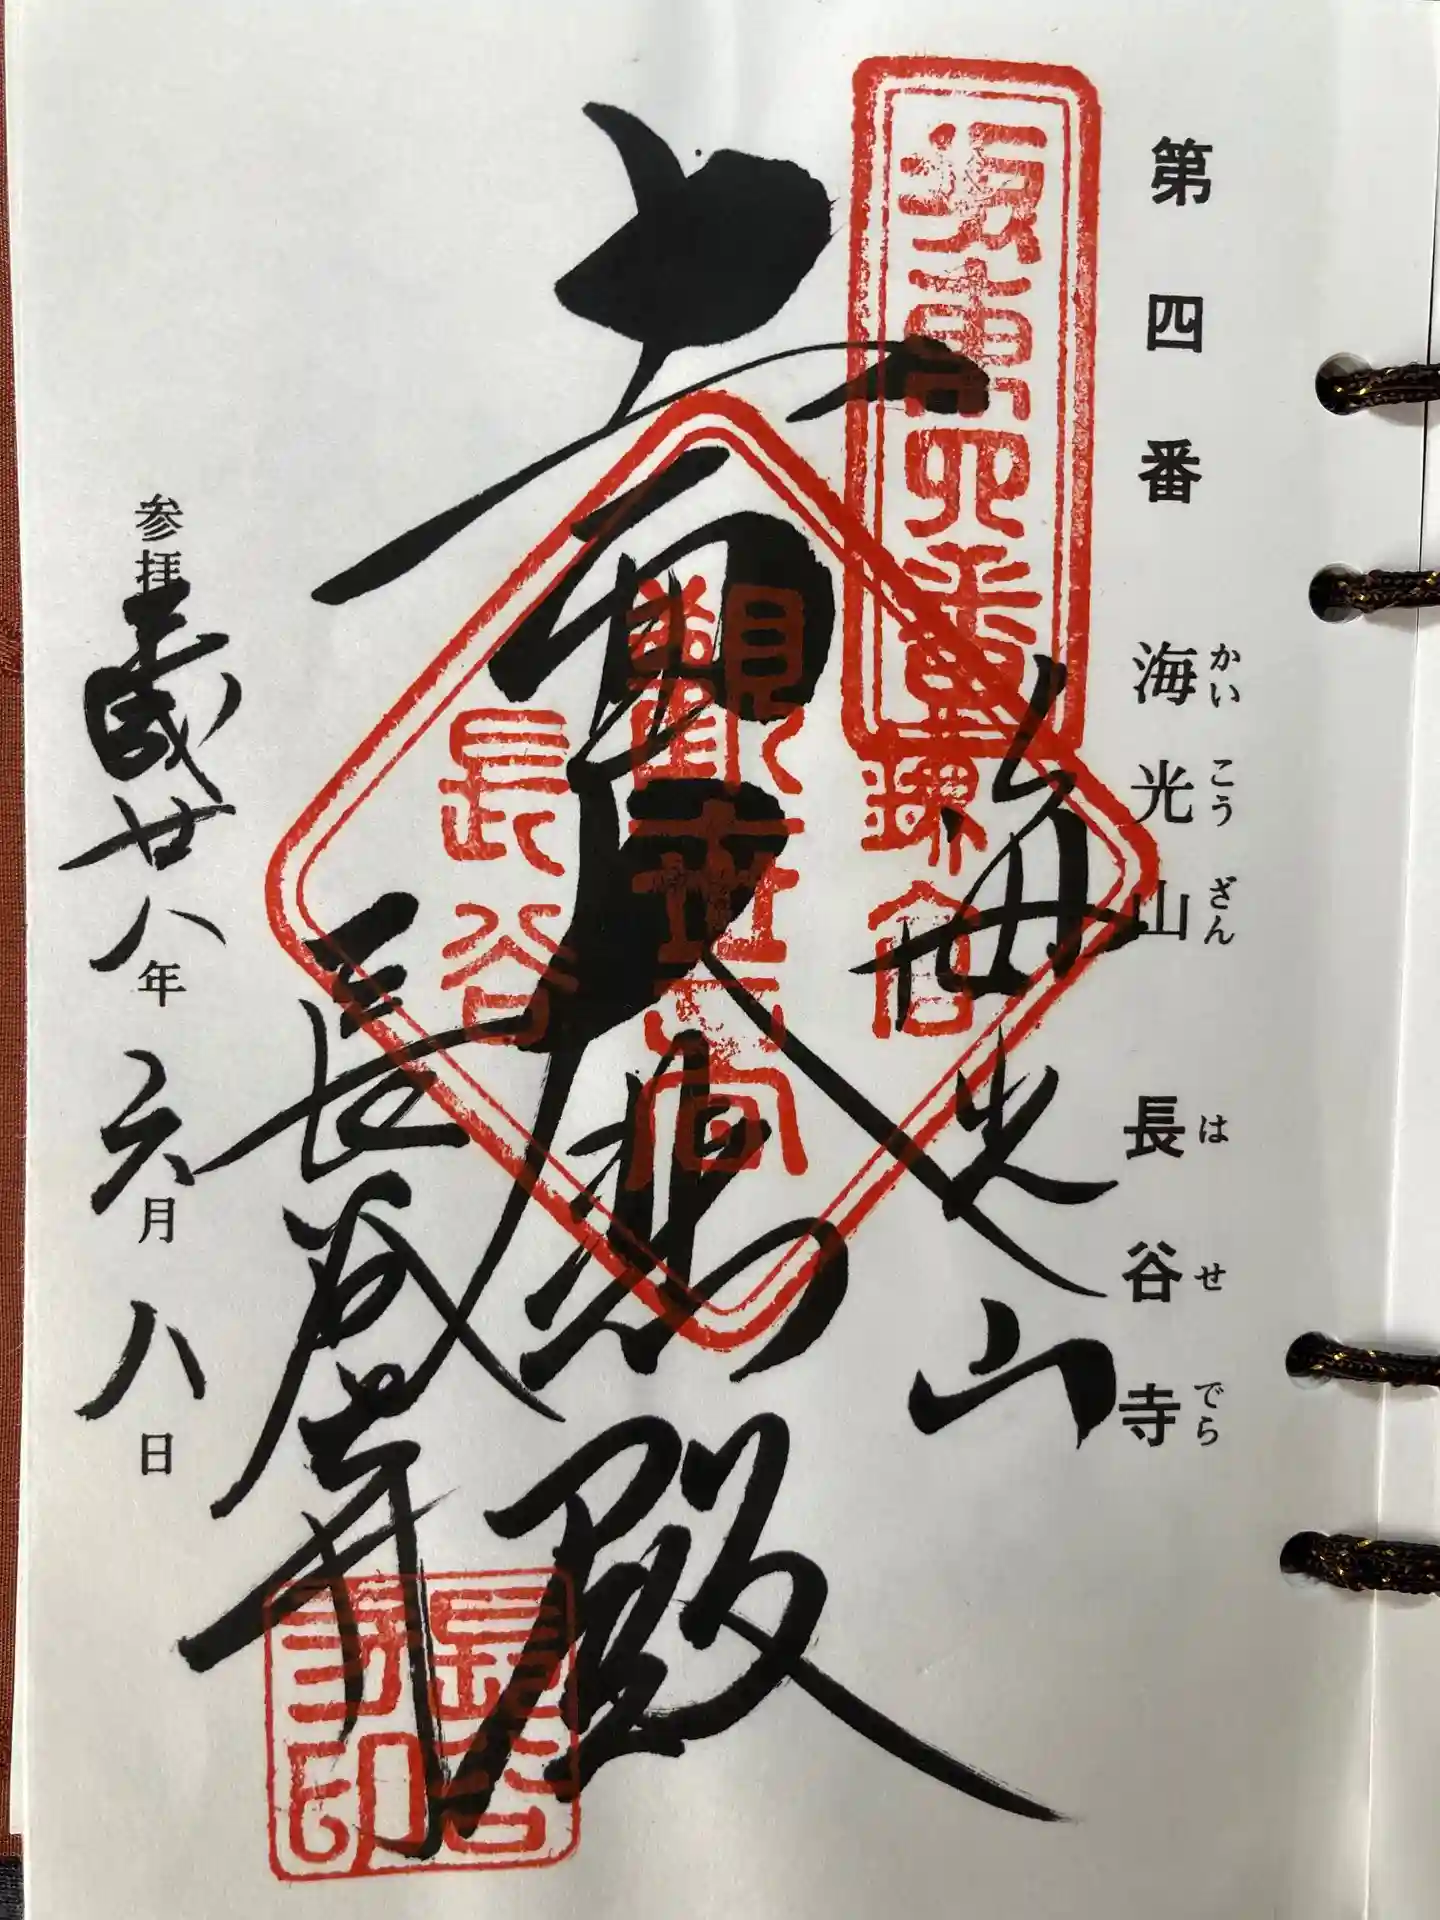 第四番 海光山 長谷寺
かいこうざん はせでら
坂東四番
海光山
鎌倉
觀世音
長谷
十一面大悲殿
長谷寺
長谷寺印
参拝 平成廿八年六月八日